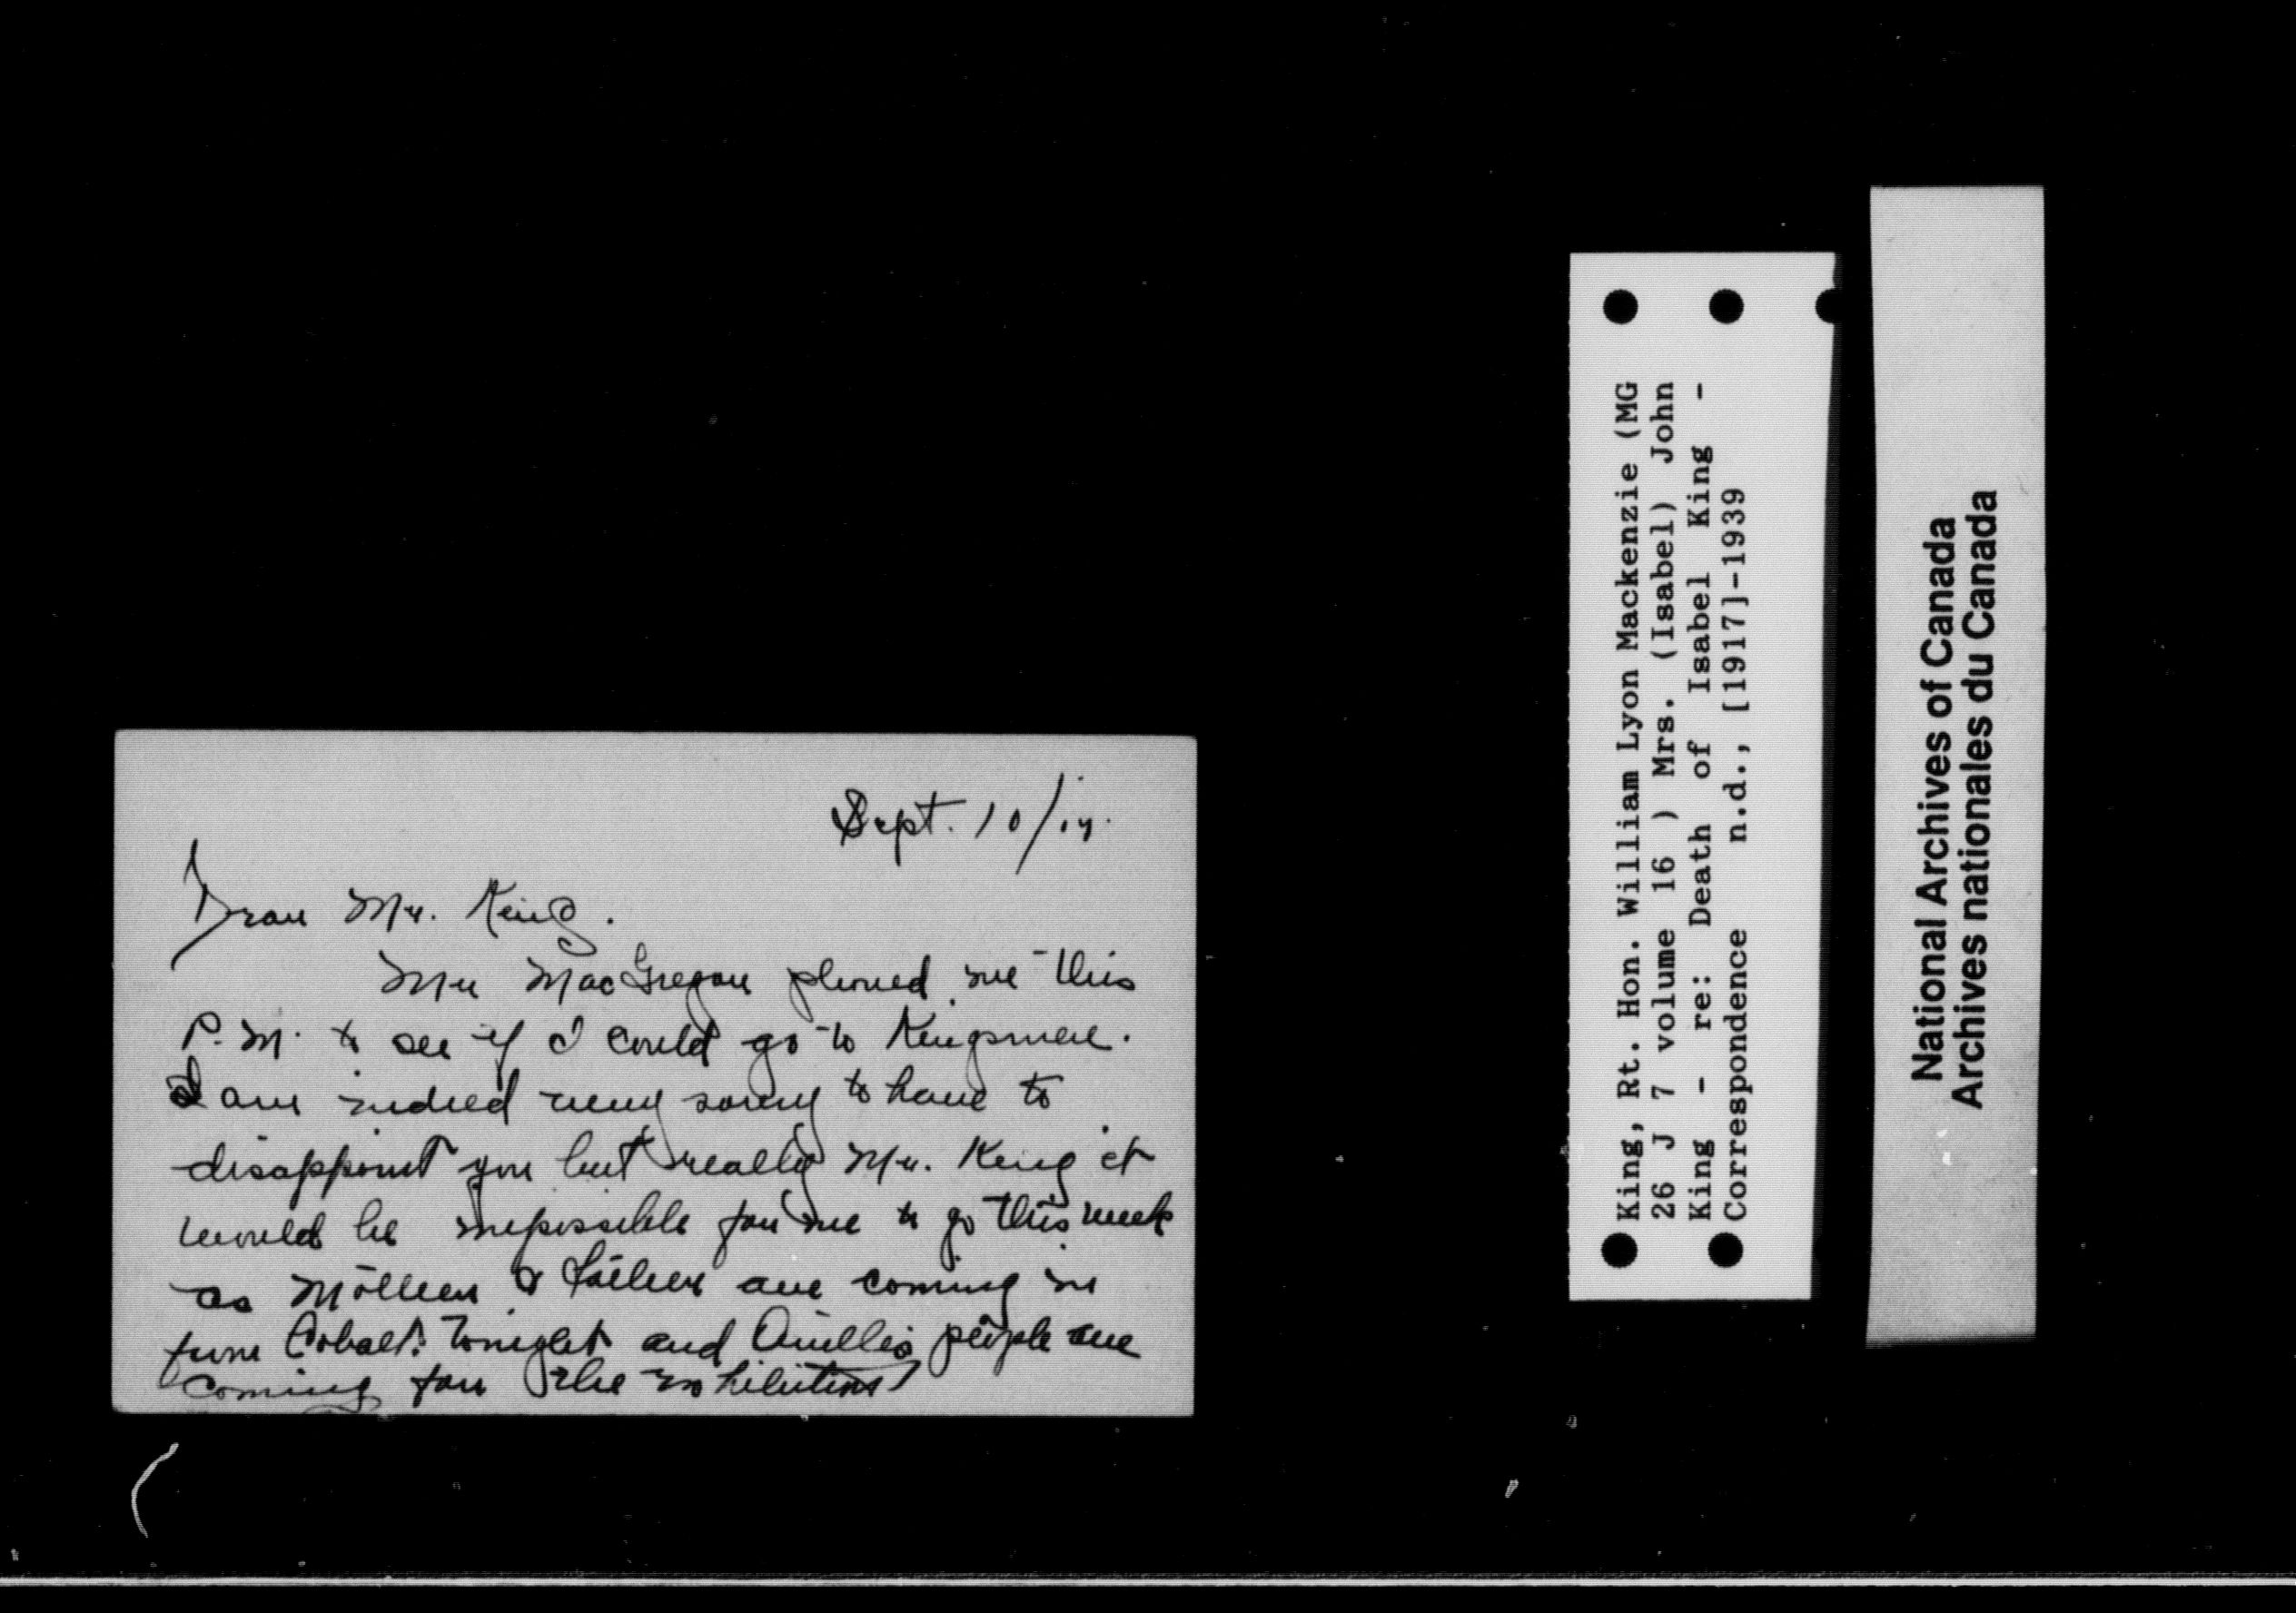 Sept. 10/17.
Dear Mr. King.
Mr MacGregor phoned me this
P.M. to see if I could go to Kingsmere.
I am indeed very sorry to have to
disappoint you but really Mr. King it
would be impossible for me to go this week
as Mother & father are coming in
from Cobalt tonight and people are
coming for the exhibition
King, Rt. Hon. William Lyon Mackenzie (MG
26 J 7 volume 16 ) Mrs. (Isabel) John
King - re: Death of Isabel King -
Correspondence n.d., [1917]-1939
National Archives of Canada
Archives nationales du Canada